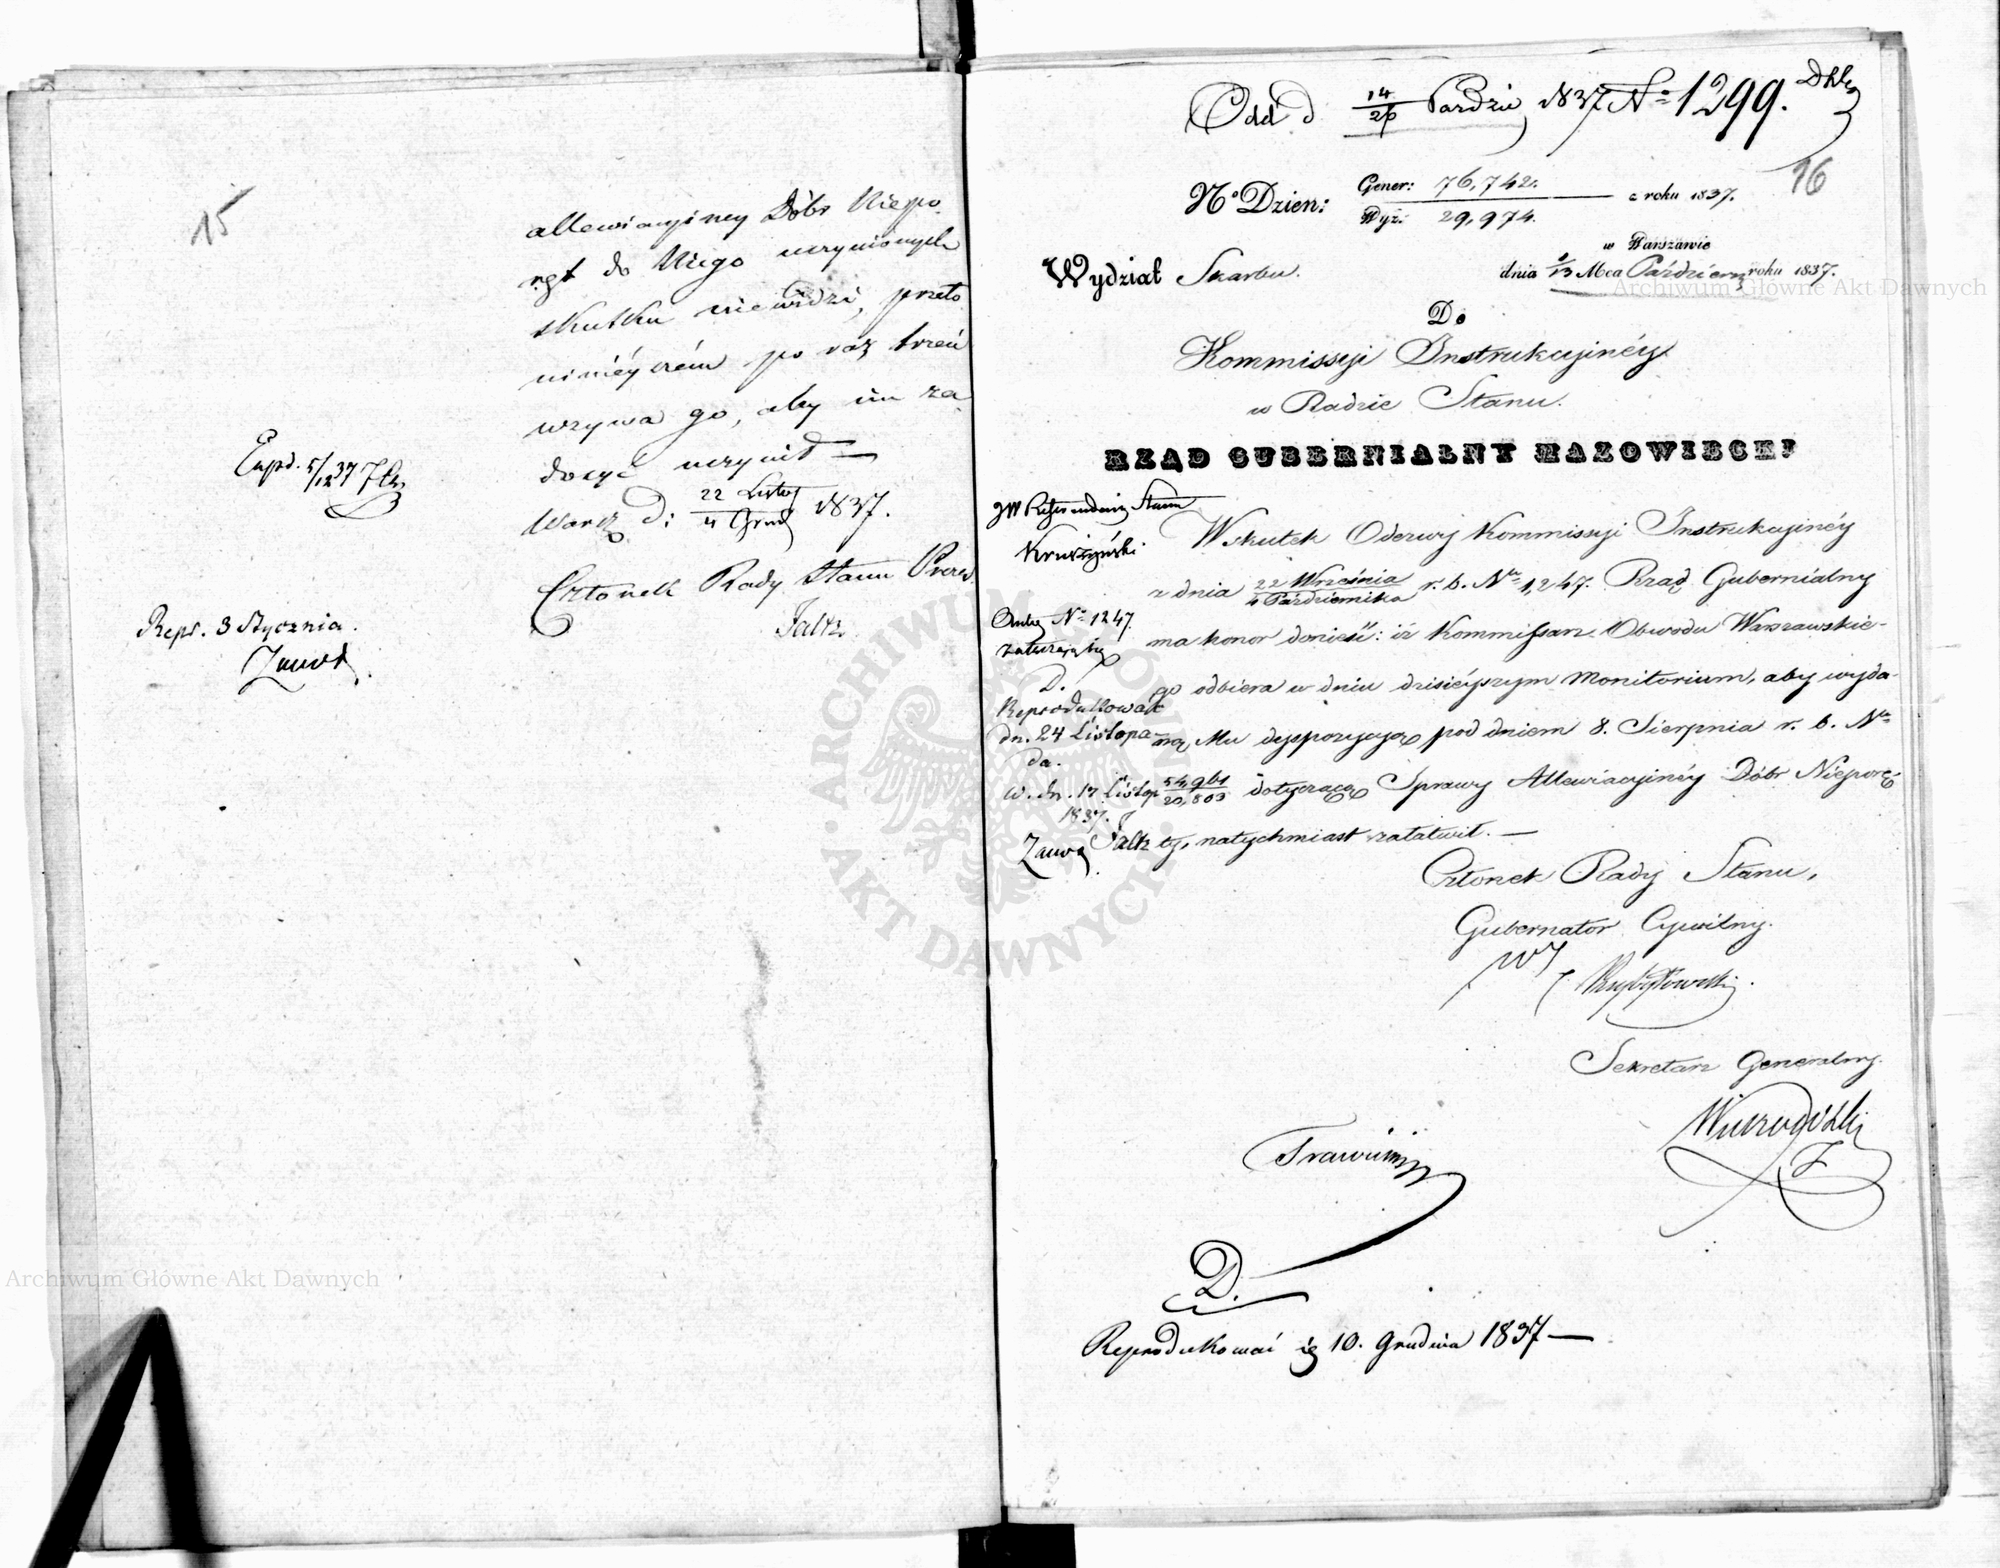 15
allewiacyjney Dóbr Niepo-
ręt do Niego uczynionych
skutku niewidzi, przeto
ninieyszém po raz trzeci
wzywa go, aby im za-
dosyć uczynił —
Warsz. d: 22 Listop / 4 Grud 1837.
Członek Rady Stanu Prezes
Faltz
Exped. 5/12 37
Repr. 3 Stycznia.
Odd d 14/26 Paździe 1837 No 1299.
16
No Dzien: Gener: 76,742. / Wyż: 29,974. z roku 1837.
w Warszawie
Wydział Skarbu. dnia 1/13 Mca Październ roku 1837.
Do
Kommissyi Instrukcyjnéy
w Radzie Stanu.
RZĄD GUBERNIALNY MAZOWIECKI
JW Referendarz Stanu
Kruszyński.
Wskutek Odezwy Kommissyi Instrukcyjnéy
z dnia 22 Września / 4 Października r. b. No 1,247. Rząd Gubernialny
ma honor donieść: iż Kommissarz Obwodu Warszawskie-
go odbiera w dniu dzisiéyszym Monitorium, aby wyda-
ną Mu dyspozycyą pod dniem 8. Sierpnia r. b. No
54,961 / 20,803 dotyczącą Sprawy Allewiacyjnéy Dóbr Niepore-
tg, natychmiast załatwił. —
No 1247
D.
Reprodukować
dn. 24 Listopa-
da.
W. dn. 17 Listop
1837.
Faltz
Członek Rady Stanu,
Gubernator Cywilny.
Sekretarz Generalny.
D.
Reprodukować 10. Grudnia 1837 —
Archiwum Główne Akt Dawnych
Archiwum Główne Akt Dawnych
ARCHIWUM GŁÓWNE AKT DAWNYCH